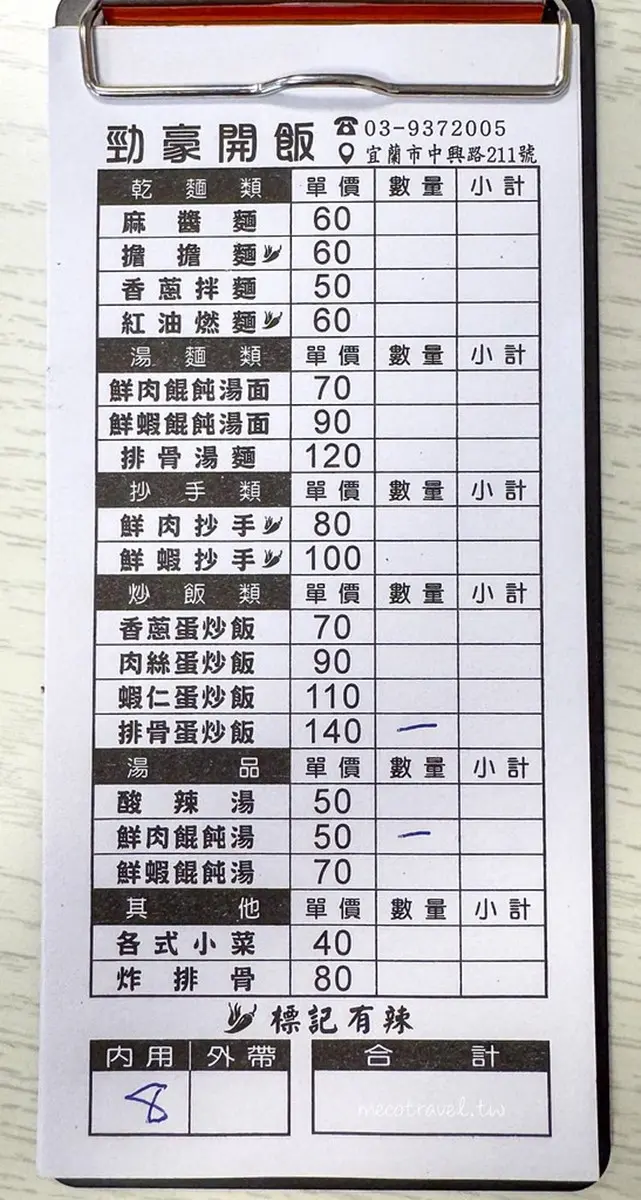 勁豪開飯 ☎03-9372005
宜蘭市中興路211號
乾麵類 單價 數量 小計
麻醬麵 60
擔擔麵 60
香蔥拌麵 50
紅油燃麵 60
湯麵類 單價 數量 小計
鮮肉餛飩湯面 70
鮮蝦餛飩湯面 90
排骨湯麵 120
抄手類 單價 數量 小計
鮮肉抄手 80
鮮蝦抄手 100
炒飯類 單價 數量 小計
香蔥蛋炒飯 70
肉絲蛋炒飯 90
蝦仁蛋炒飯 110
排骨蛋炒飯 140 一
湯品 單價 數量 小計
酸辣湯 50
鮮肉餛飩湯 50 一
鮮蝦餛飩湯 70
其他 單價 數量 小計
各式小菜 40
炸排骨 80
標記有辣
內用 外帶 合計
8
mecotravel.tw